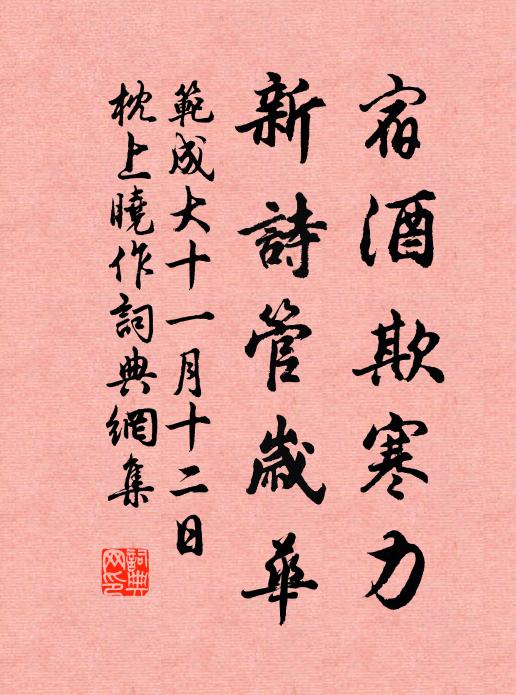 宿酒欺寒力
新詩管歲華
範成大十一月十二日
枕上曉作詞典網集
詞典
网印